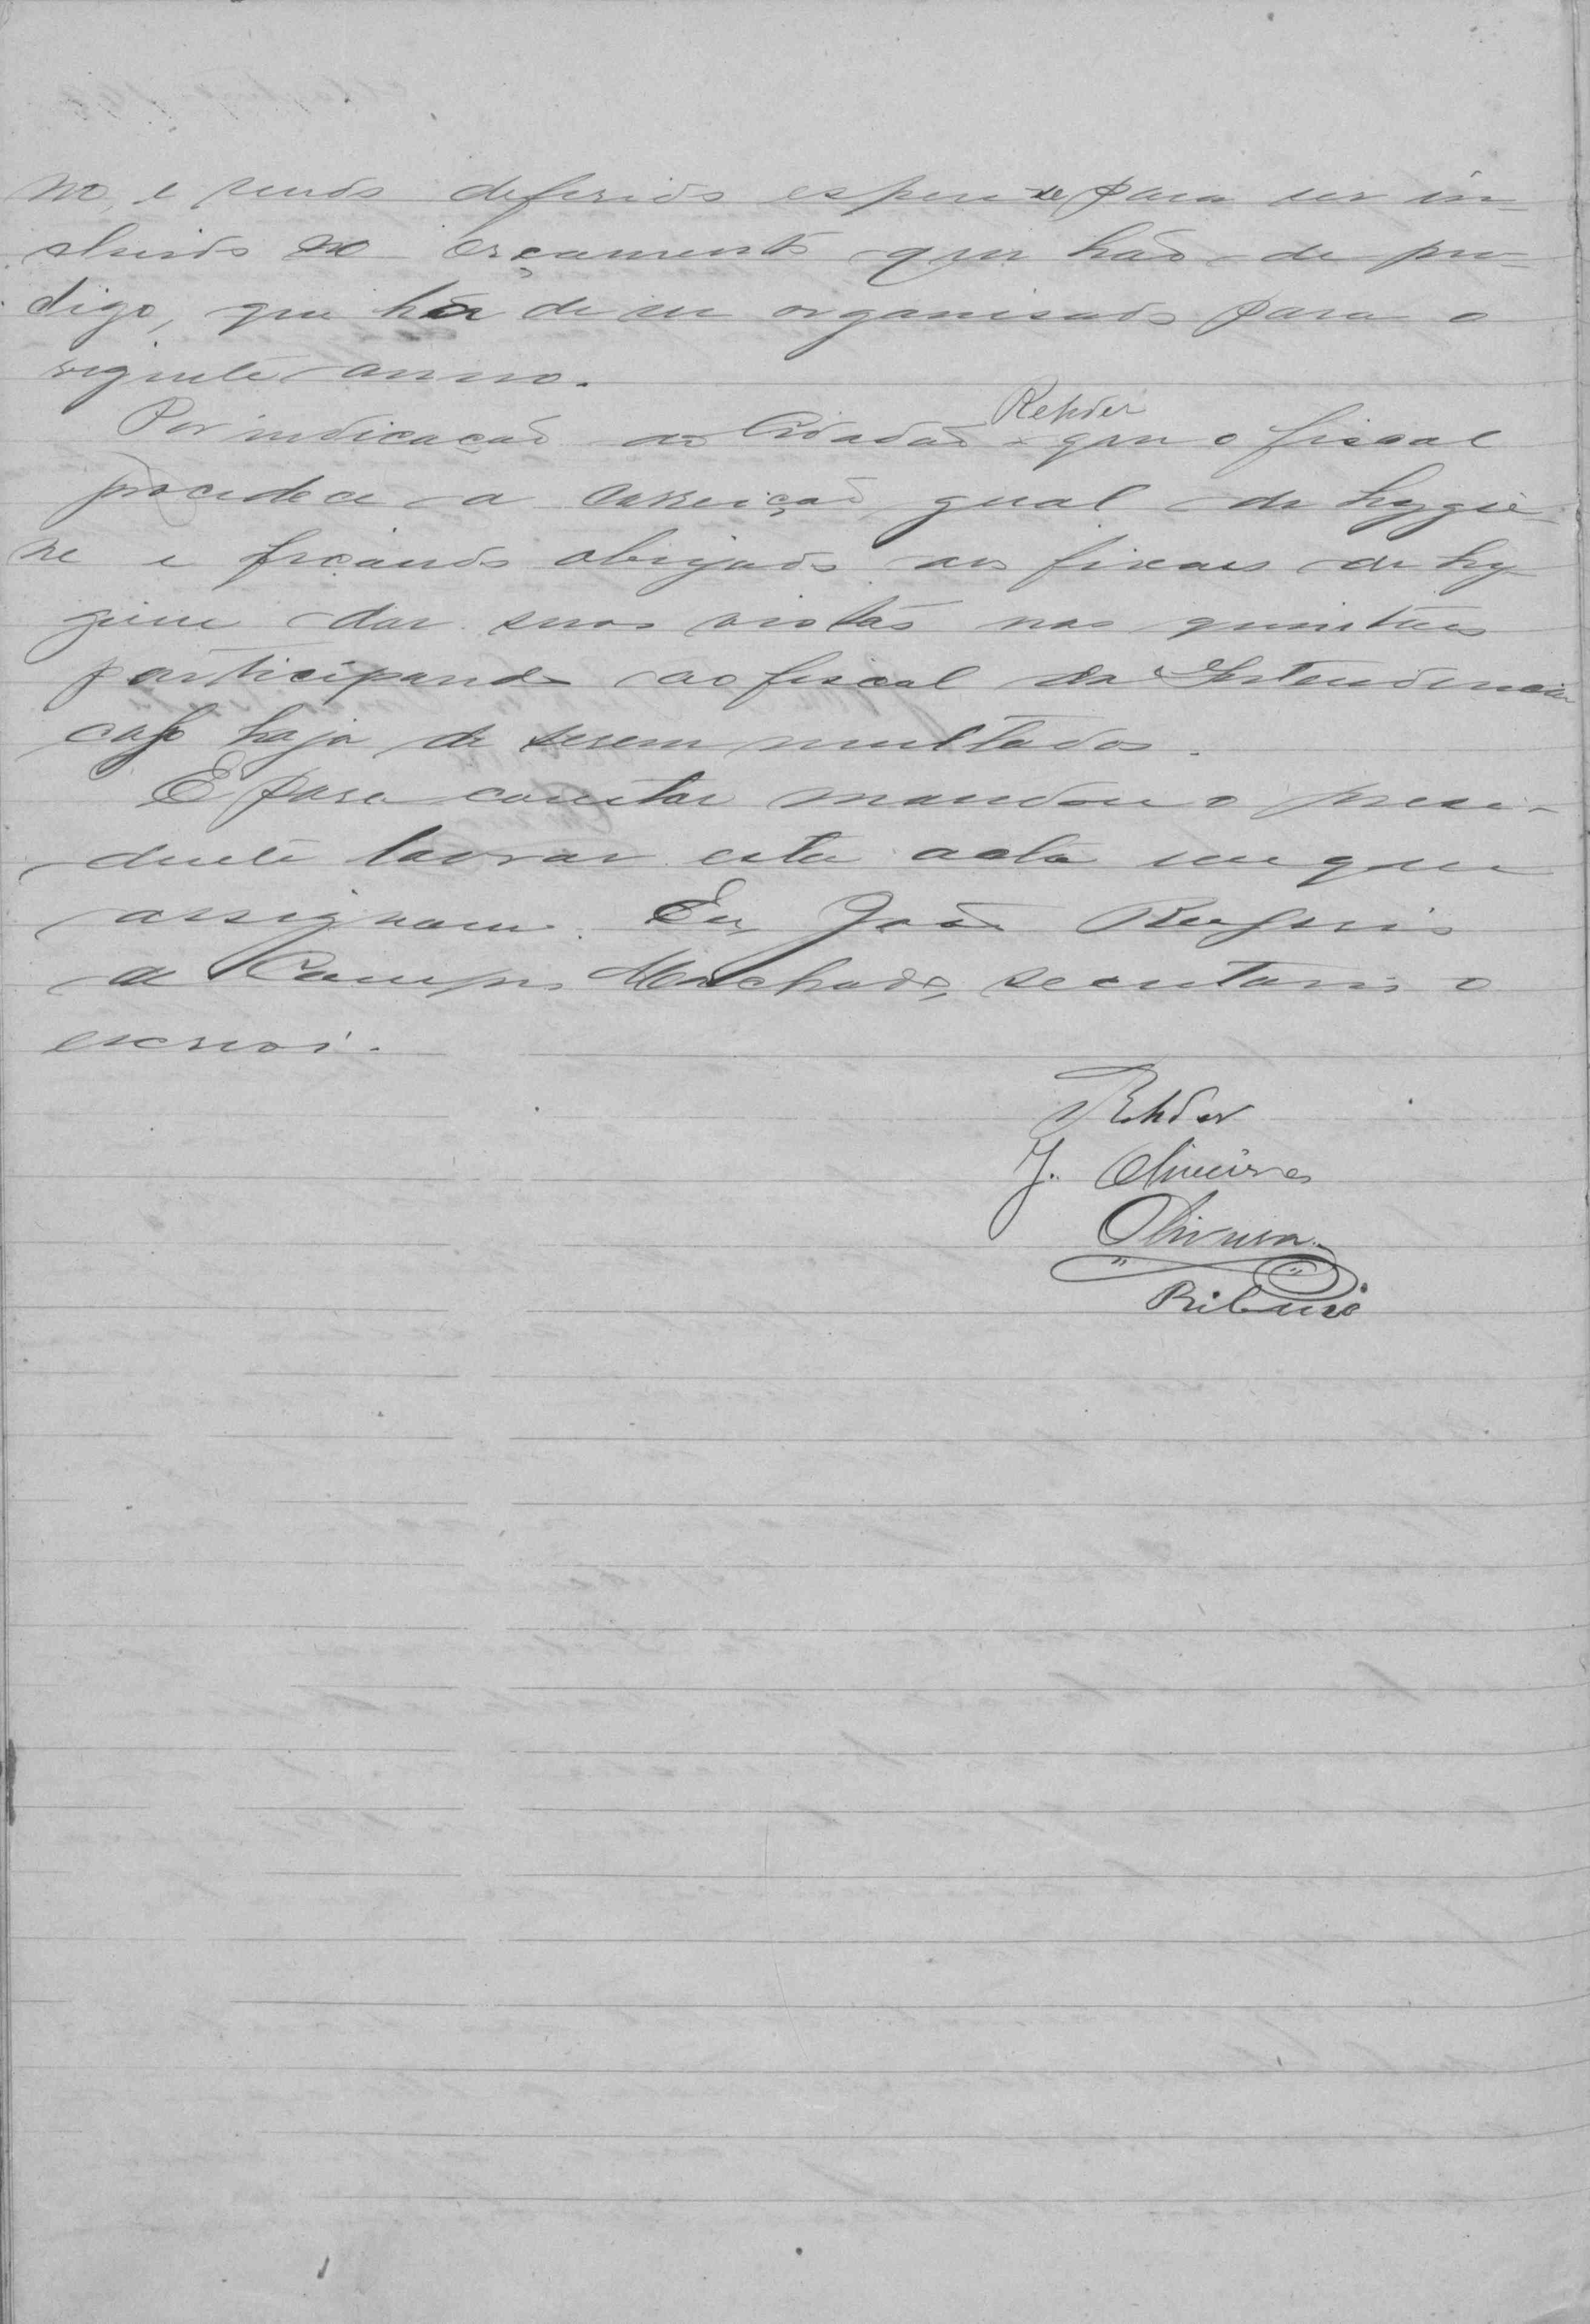 no, e sendo deferido espera-se para ser in-
cluido no orçamento que hão de pro-
digo, que há de ser organisado para o
seguinte anno.
Por indicação do Cidadão Rehder que o fiscal
proceda a correição geral de hygie-
ne e ficando obrigado aos fiscaes de hy-
giene dar suas vistas nos quintaes
participando ao fiscal da Intendencia
caso haja de serem multados.
E para constar mandou o presi-
dente lavrar esta acta em que
assignam. Eu, João
de Campos Machado, secretario o
escrevi.
Rehder
J. Oliveira
Oliveira
Ribeiro